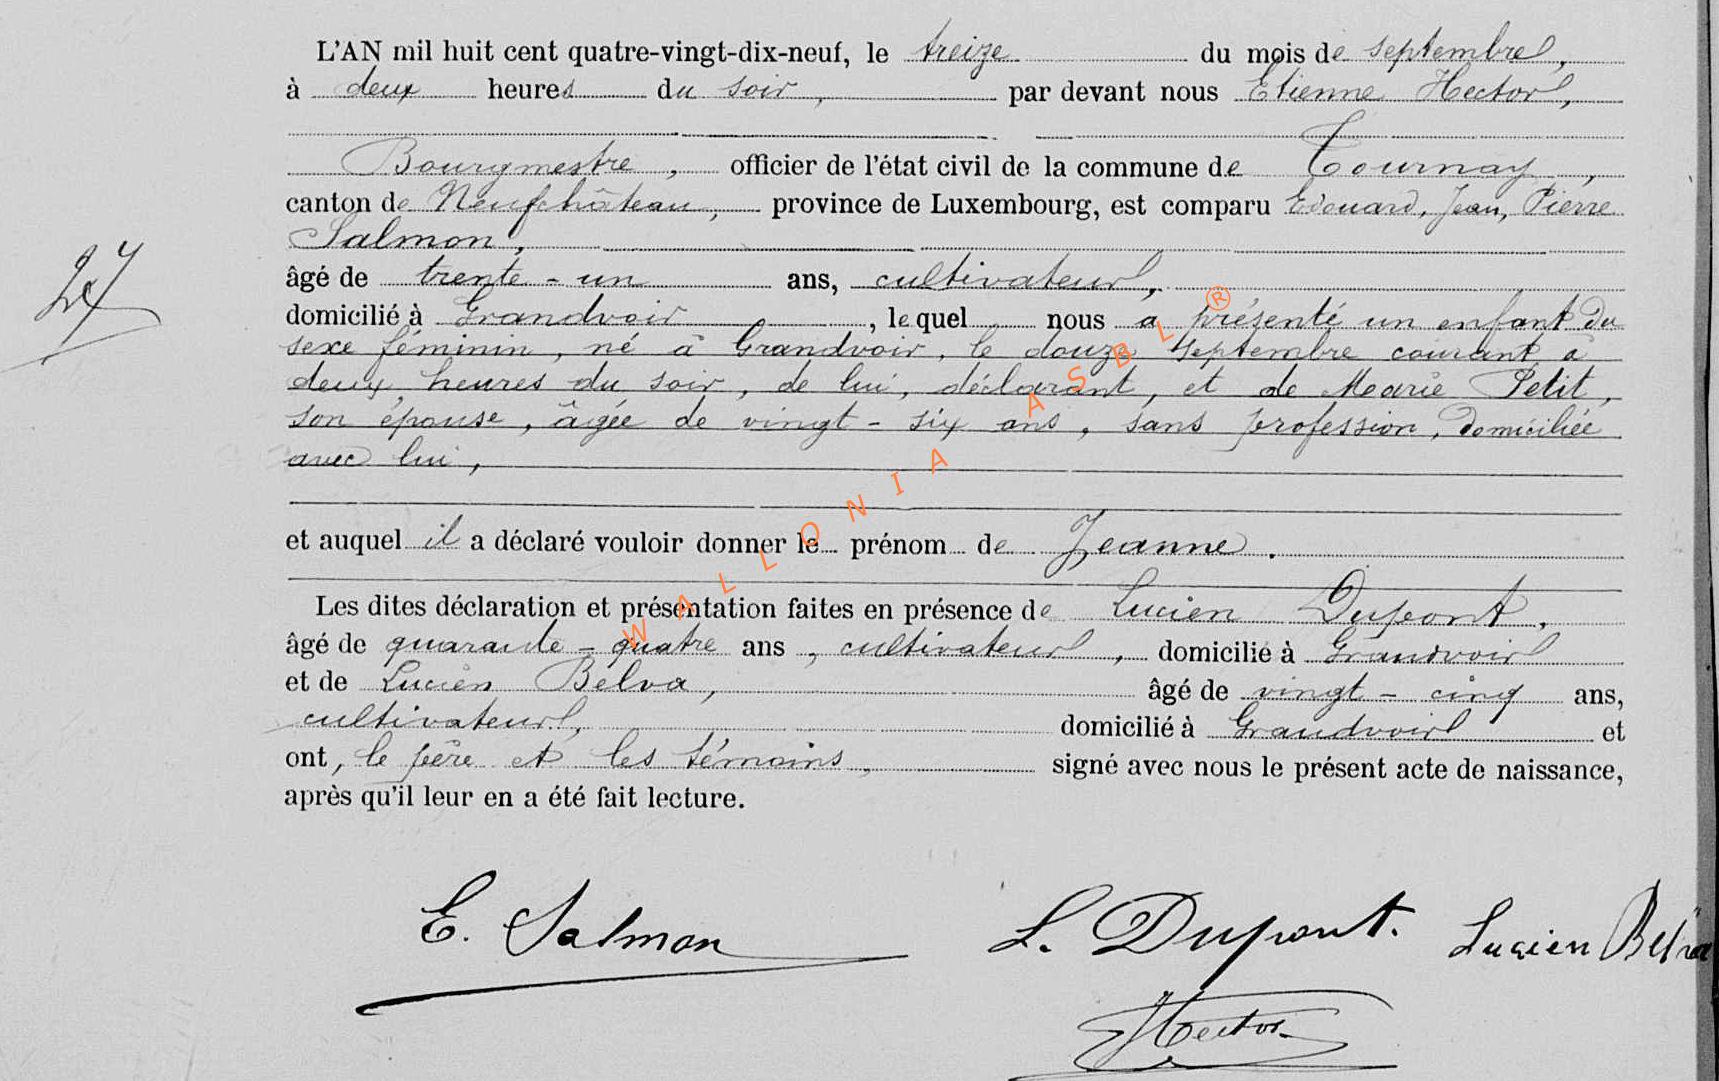 L'AN mil huit cent quatre-vingt-dix-neuf, le treize du mois de septembre,
à deux heures du soir, par devant nous Etienne Hector,
Bourgmestre, officier de l'état civil de la commune de Tournay,
canton de Neufchâteau, province de Luxembourg, est comparu Edouard, Jean, Pierre
Salmon,
âgé de trente-un ans, cultivateur,
domicilié à Grandvoir, lequel nous a présenté un enfant du
sexe féminin, né à Grandvoir, le douze septembre courant à
deux heures du soir, de lui, déclarant, et de Marie Petit,
son épouse, âgée de vingt-six ans, sans profession, domiciliée
avec lui,
27
et auquel il a déclaré vouloir donner le prénom de Jeanne.
Les dites déclaration et présentation faites en présence de Lucien Dupont,
âgé de quarante-quatre ans, cultivateur, domicilié à Grandvoir
et de Lucien Belva, âgé de vingt-cinq ans,
cultivateur, domicilié à Grandvoir et
ont, le père et les témoins, signé avec nous le présent acte de naissance,
après qu'il leur en a été fait lecture.
E. Salmon L. Dupont. Lucien Belva
Hector
WALLONIA ASBL ®